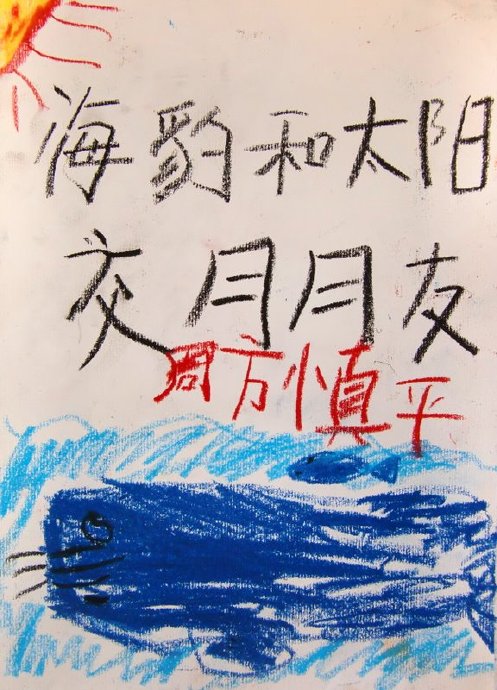 海豹和太阳
交朋友
周方慎平